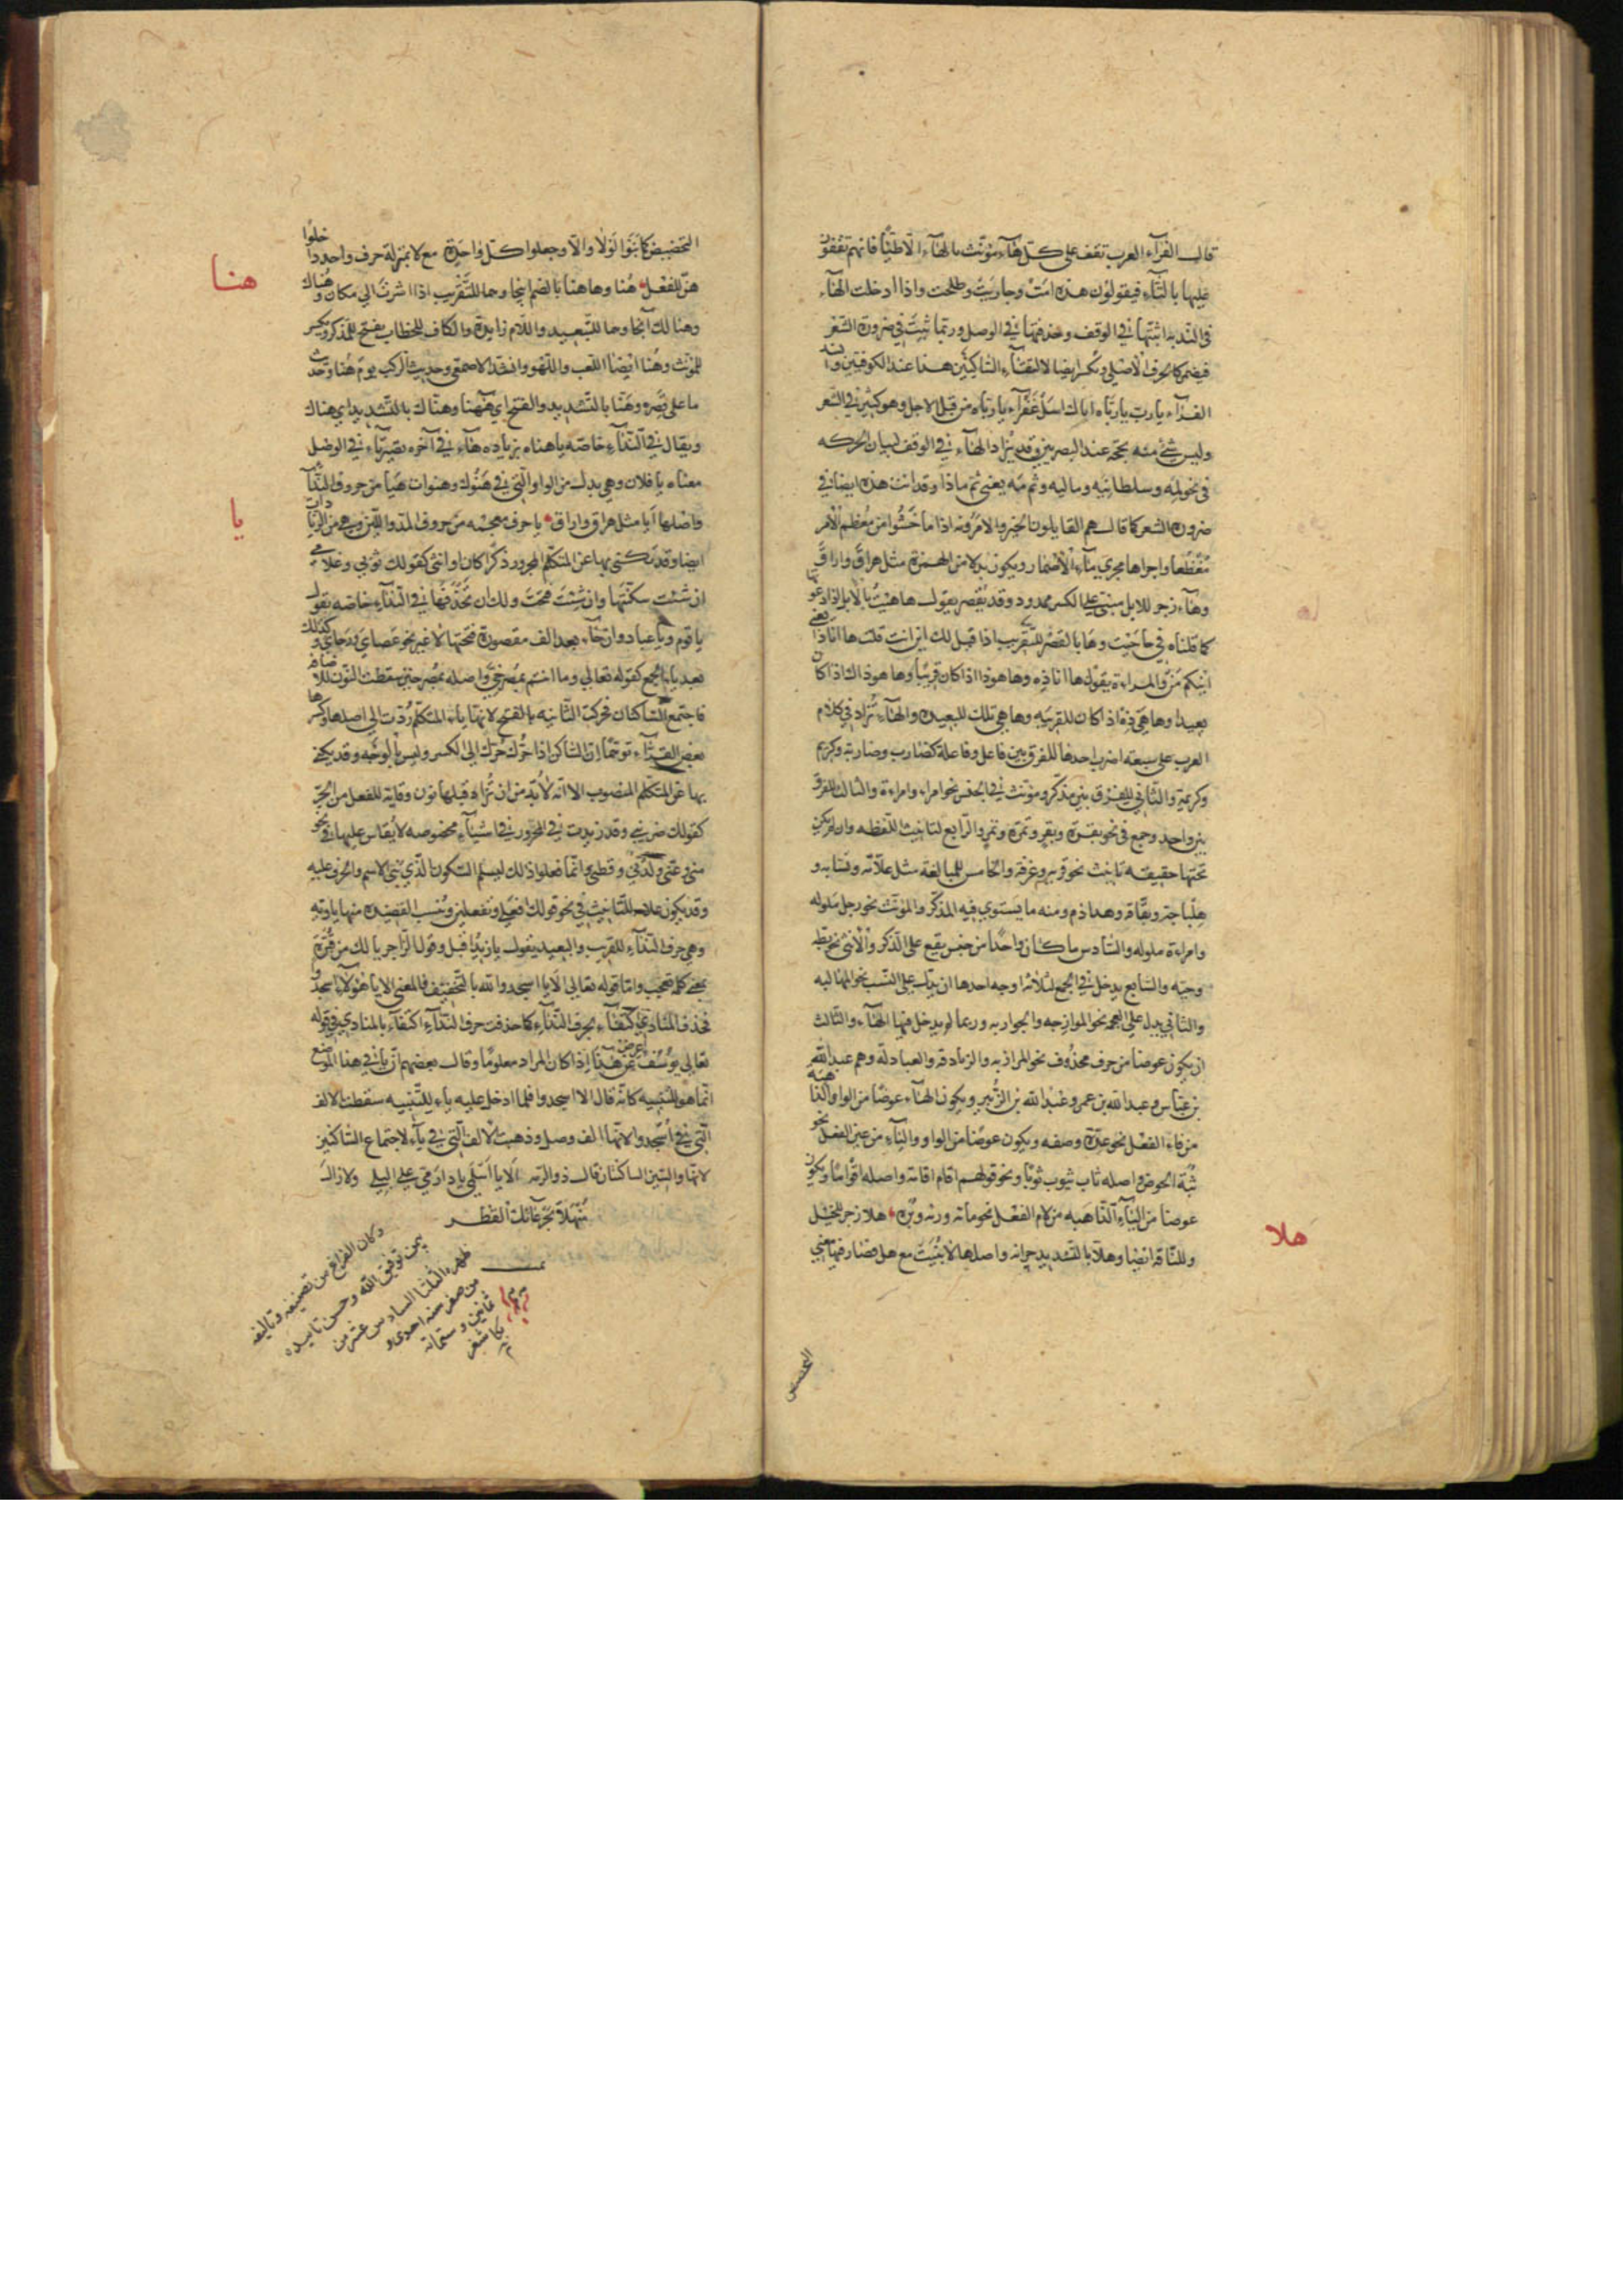 قال الفرآء العرب تقف على كل هآء مؤنث بالهآء الا طيّئا فانهم يقفون
عليها بالتآء فيقولون هذه امت وجاريت وطلحت واذا ادخلت الهآء
في الندبه اثبتها في الوقف وحذفتها في الوصل وربما ثبتت في ضرورة الشعر
فيضم كالحرف الاصلي وتكسر ايضا لالتقآء الساكنين هذا عند الكوفيين وانشد
الفرآء يا رب يا رباه اياك اسل عفرآء يا رباه من قبل الاجل وهو كثير في الشعر
وليس شئ منه بحجه عند البصريين وقد تزاد الهآء في الوقف لبيان الحركه
في نحو لمه وسلطانيه وماليه وثم مه يعني ثم ماذا وقد اتت هذه ايضا في
ضرورة الشعر كما قال هم القايلون الخير والامرونه اذا ما خشوا من معظم الامر
مفظعا واجراها مجرى هآء الاضمار ويكون بدلا من الهمزة مثل هراق واراق
وهآء زجر للابل مبني على الكسر ممدود وقد يقصر يقول هاهيت بالابل اذا دعوتها
كما قلناه في حاحيت وها بالقصر للتقريب اذا قيل لك اين انت قلت ها انا ذا
اينكم من والمراءة يقول ها انا ذه وها هو ذا اذا كان قريبا وها هو ذاك اذا كان
بعيدا وها هي ذه اذا كان للقريبه وها هي تلك للبعيده والهآء تزاد في كلام
العرب على سبعة اضرب احدها للفرق بين فاعل وفاعلة كضارب وضاربة وكريم
وكريمة والثاني للفرق بين مذكر ومونث في الجنس نحو امراء وامراءة والثالث للفرق
بين واحد وجمع في نحو بقرة وبقر وتمرة وتمر والرابع لتانيث اللفظه وان لم يكن
تحتها حقيقه تانيث نحو قربه وغرفه والخامس للمبالغة مثل علامة ونسابه و
هلباجة وبقاقة وهذا ذم ومنه ما يستوي فيه المذكر والمونث نحو رجل ملوله
وامراءة ملوله والسادس ما كان واحدا من جنس يقع على الذكر والانثى نحو بطه
وحيه والسابع يدخل في الجمع لثلاثة اوجه احدها ان يدل على النسب نحو المهالبه
والثاني يدل على العجمه نحو الموازجه والجواربه وربما لم يدخل فيها الهآء والثالث
ان يكون عوضا من حرف محذوف نحو المرازبه والزنادقه والعبادلة وهم عبد الله
بن عباس وعبد الله بن عمر وعبد الله بن الزبير ويكون الهآء عوضا من الواو الذاهبه
من فاء الفعل نحو عدة وصفه ويكون عوضا من الواو والياء من عين الفعل نحو
ثبة الحوض واصله ثاب يثوب ثوبا ونحو قولهم اقام اقامة واصله اقواما ويكون
عوضا من اليآء الذاهبه من لام الفعل نحو مائة ورئة وبره هلا زجر للخيل
وللناقة ايضا وهلا بالتشديد حرانه واصلها لا بنيت مع هل فصار فيها معنى
هلا
التحضيض
التحضيض كما بنوا لولا والا وجعلوا كل واحدة مع لا بمنزلة حرف واحد دا خلوا
هن للفعل هنا وهاهنا بالضم اينجا وهما للتقريب اذا اشرت الى مكان وهناك
وهنالك آنجا وهما للتبعيد واللام زايدة والكاف للخطاب يفتح للمذكر ويكسر
للمونث وهنا ايضا اللعب واللهو وانشد الاصمعي وحديث الركب يوم هنا وحديث
ما على قصره وهنا بالتشديد والفتح اي هاهنا وهناك بالتشديد اي هناك
ويقال في الندآء خاصه يا هناه بزياده هآء في آخره تصير تآء في الوصل
معناه يا فلان وهي بدل من الواو التي في هنوك وهنوات هيا من حروف الندآ
واصلها ايا مثل هراق واراق يا حرف معجمه من حروف المد واللين وهي من الزيادات
ايضا وقد يكنى بها عن المتكلم المجرور ذكرا كان او انثى كقولك ثوبي وغلامي
ان شئت سكنتها وان شئت فتحت ولك ان تحذفها في الندآء خاصه تقول
يا قوم ويا عباد وان جآء بعد الف مقصورة فتحتها لا غير نحو عصاي ورحاي وكذلك
بعد ياء الجمع كقوله تعالى وما انتم بمصرخي واصله بمصرخين سقطت النون للاضافه
فاجتمع الساكنان فحركت الثانيه بالفتح لانها يآء المتكلم ردت الى اصلها وكسرها
بعض القرآء توهما ان الساكن اذا حرك حرك الى الكسر وليس بالوجه وقد يكنى
بها عن المتكلم المنصوب الا انه لا بد من ان تزاد قبلها نون وقاية للفعل من الجر
كقولك ضربني وقد زيدت في المجرور في اشيآء مخصوصه لا يقاس عليها في نحو
مني وعني ولدني وقطني وانما فعلوا ذلك ليسلم السكون الذي بني الاسم والحرف عليه
وقد يكون علامة للتانيث في نحو قولك افعلي وتفعلين وتنسب القصيده منها ياويه
وهي حرف الندآء للقريب والبعيد يقول يا زيد اقبل وقول الراجز يا لك من قبرة
بمعمر كلمة تعجب واما قوله تعالى الا يا اسجدوا لله بالتخفيف فالمعنى الا يا هؤلاء اسجدوا
فحذف المنادى اكتفآء بحرف الندآء كما حذفت حرف الندآء اكتفآء بالمنادى في قوله
تعالى يوسف اعرض عن هذا اذا كان المراد معلوما وقال بعضهم ان يا في هذا الموضع
انما هو للتنبيه كانه قال الا اسجدوا فلما ادخل عليه ياء للتنبيه سقطت الالف
التي في اسجدوا لانها الف وصل وذهبت الالف التي في يآء لاجتماع الساكنين
لانها والسين الساكنان قال ذو الرمه الا يا اسلمي يا دار مي على البلى ولا زال
منهلا بجرعائك القطر
هنا
يا
تمت
وكان الفراغ من تصنيفه وتاليفه
بيمن توفيق الله وحسن تاييده
ظهره الثلثا السادس عشر من
من صفر سنه احدى و
ثمانين وستمائة
بكاشغر